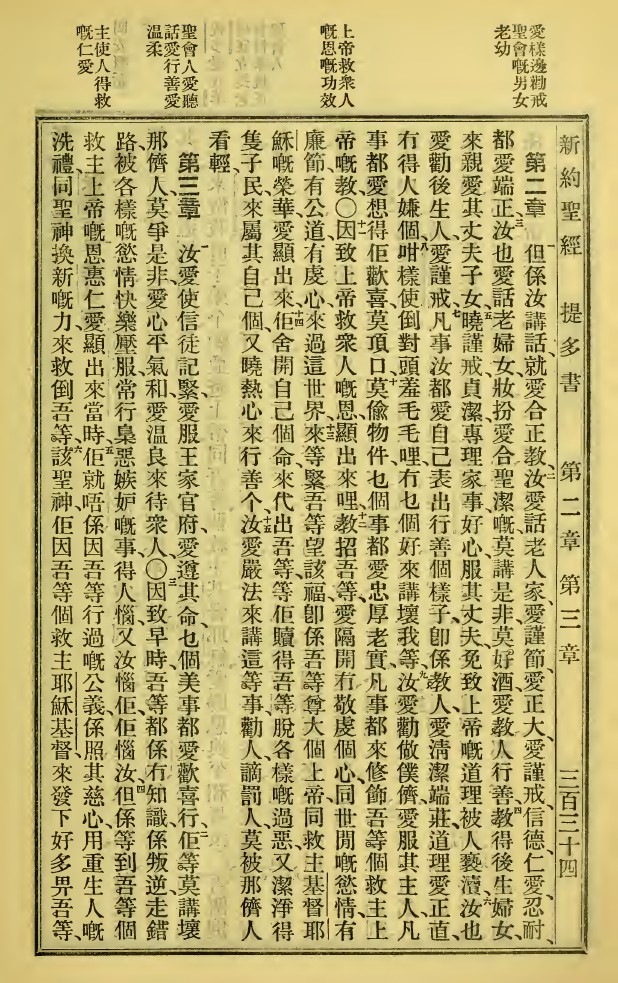 愛樣邊勸戒
聖會嘅男女
老幼
上帝救衆人
嘅恩嘅功效
聖會人愛聽
話愛行善愛
溫柔
主使人得救
嘅仁愛
新約聖經 提多書 第二章 第三章 三百三十四
第二章 一但係汝講話、就愛合正教、二汝愛話老人家、愛謹節、愛正大、愛謹戒、信德、仁愛、忍耐、
都愛端正、三汝也愛話老婦女、妝扮愛合聖潔嘅、莫講是非、莫好酒、愛教人行善、四教得後生婦女、
來親愛其丈夫子女、五曉謹戒、貞潔、專理家事、好心、服其丈夫、免致上帝嘅道理、被人褻瀆、六汝也
愛勸後生人、愛謹戒、七凡事汝都愛自己表出行善個樣子、卽係教人、愛淸潔端莊、道理愛正直、
冇得人嫌個、八咁樣使倒對頭羞毛毛哩、冇乜個好來講壞我等、九汝愛勸做僕儕、愛服其主人、凡
事都愛想得佢歡喜、莫頂口、十莫偸物件、乜個事都愛忠厚老實、凡事都來修飾吾等個救主上
帝嘅教、〇十一因致上帝救衆人嘅恩、顯出來哩、十二教招吾等、愛隔開冇敬虔個心、同世間嘅慾情、有
廉節、有公道、有虔心、來過這世界、十三來等緊吾等望該福、卽係吾等尊大個上帝、同救主基督耶
穌嘅榮華、愛顯出來、十四佢舍開自己個命、來代出吾等、佢贖得吾等、脫各樣嘅過惡、又潔淨得
隻子民、來屬其自己個、又曉熱心來行善个、十五汝愛嚴法來講這等事、勸人、謫罰人、莫被那儕人
看輕、
第三章 一汝愛使信徒記緊、愛服王家官府、愛遵其命、乜個美事都愛歡喜行、二佢等莫講壞
那儕人、莫爭是非、愛心平氣和、愛溫良來待衆人、〇三因致早時、吾等都係冇知識、係叛逆、走錯
路、被各樣嘅慾情快樂壓服、常行梟惡嫉妒嘅事、得人惱、又汝惱佢、佢惱汝、四但係等到吾等個
救主上帝嘅恩惠仁愛、顯出來當時、五佢就唔係因吾等行過嘅公義、係照其慈心、用重生人嘅
洗禮、同聖神換新嘅力、來救倒吾等、六該聖神、佢因吾等個救主耶穌基督、來發下好多畀吾等、